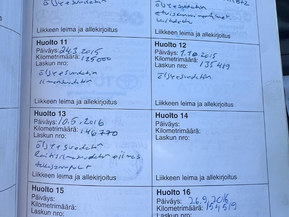 öljysuodatin
Liikkeen leima ja allekirjoitus
Liikkeen leima ja allekirjoitus
Huolto 11
Päiväys: 24.3.2015
Kilometrimäärä: 125000
Laskun nro:
öljysuodatin
ilmansuodatin
Liikkeen leima ja allekirjoitus
Huolto 12
Päiväys:
Kilometrimäärä: 135419
Laskun nro:
öljysuodatin
Liikkeen leima ja allekirjoitus
Huolto 13
Päiväys: 10.5.2016
Kilometrimäärä: 146770
Laskun nro:
öljysuodatin
Liikkeen leima ja allekirjoitus
Huolto 14
Päiväys:
Kilometrimäärä:
Laskun nro:
Liikkeen leima ja allekirjoitus
Huolto 15
Päiväys:
Kilometrimäärä:
Laskun nro:
Huolto 16
Päiväys: 26.9.2016
Kilometrimäärä: 154519
Laskun nro: